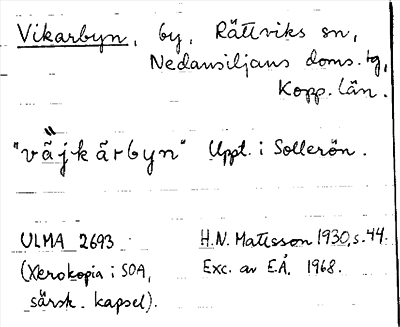 Vikarbyn, by, Rättviks sn,
Nedansiljans doms.tg,
Kopp. län.
"väjkārbyn" Uppt. i Sollerön.
ULMA 2693 H.N. Matsson 1930, s. 44.
(Xerokopia i SOA, Exc. av E.Å. 1968.
särsk. kapsel).